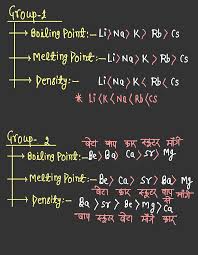 Group-1
→ Boiling Point:- Li>Na>K>Rb>Cs
→ Melting Point:- Li>Na>K>Rb>Cs
→ Density:- Li<Na>K<Rb<Cs
* Li<K<Na<Rb<Cs
Group-2
बेटा बाप कार स्कूटर माँगे
→ Boiling Point:- Be>Ba>Ca>Sr>Mg
→ Melting Point:- Be>Ca>Sr>Ba>Mg
बेटा कार स्कूटर बाप से माँगे
→ Density:- Ba>Sr>Be>Mg>Ca
बाप स्कूटर बेटा माँगे कार